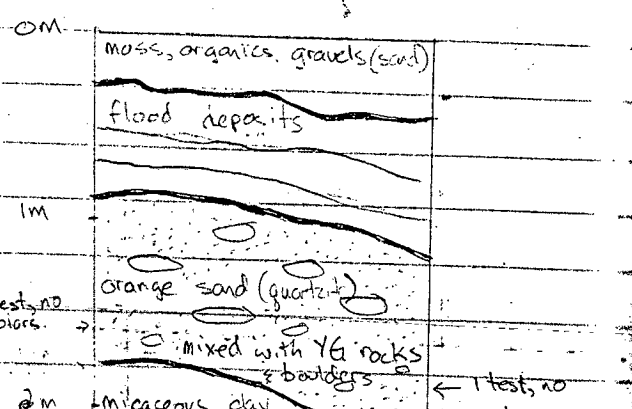 0M
moss, organics, gravels (sand)
flood deposits
1M
orange sand (quartz)
test, no
colors.
mixed with YG rocks
& boulders
← 1 test, no
2m
micaceous clay